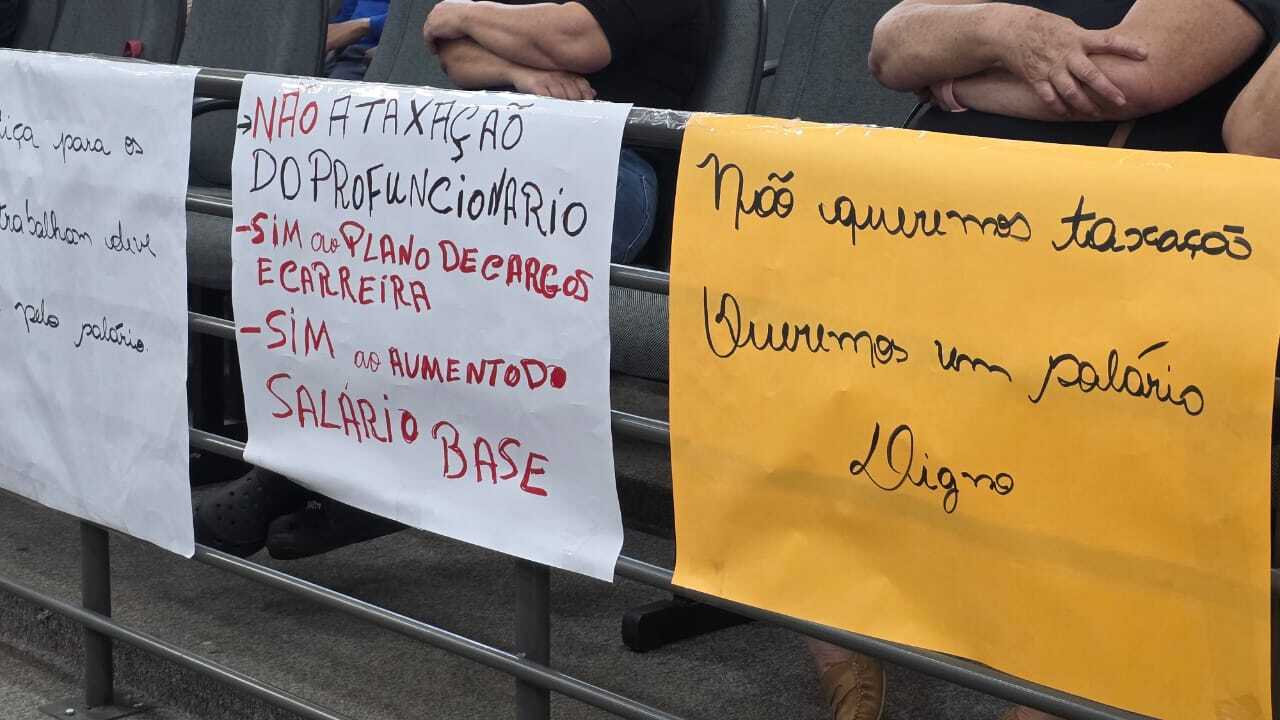 iça para os
trabalham deve
pelo salário.
→NÃO A TAXAÇAÕ
DO PROFUNCIONARIO
-SIM ao PLANO DE CARGOS
E CARREIRA
-SIM ao AUMENTO DO
SALÁRIO BASE
Nõo queremos taxaçoõ
Queremos um salário
Digno